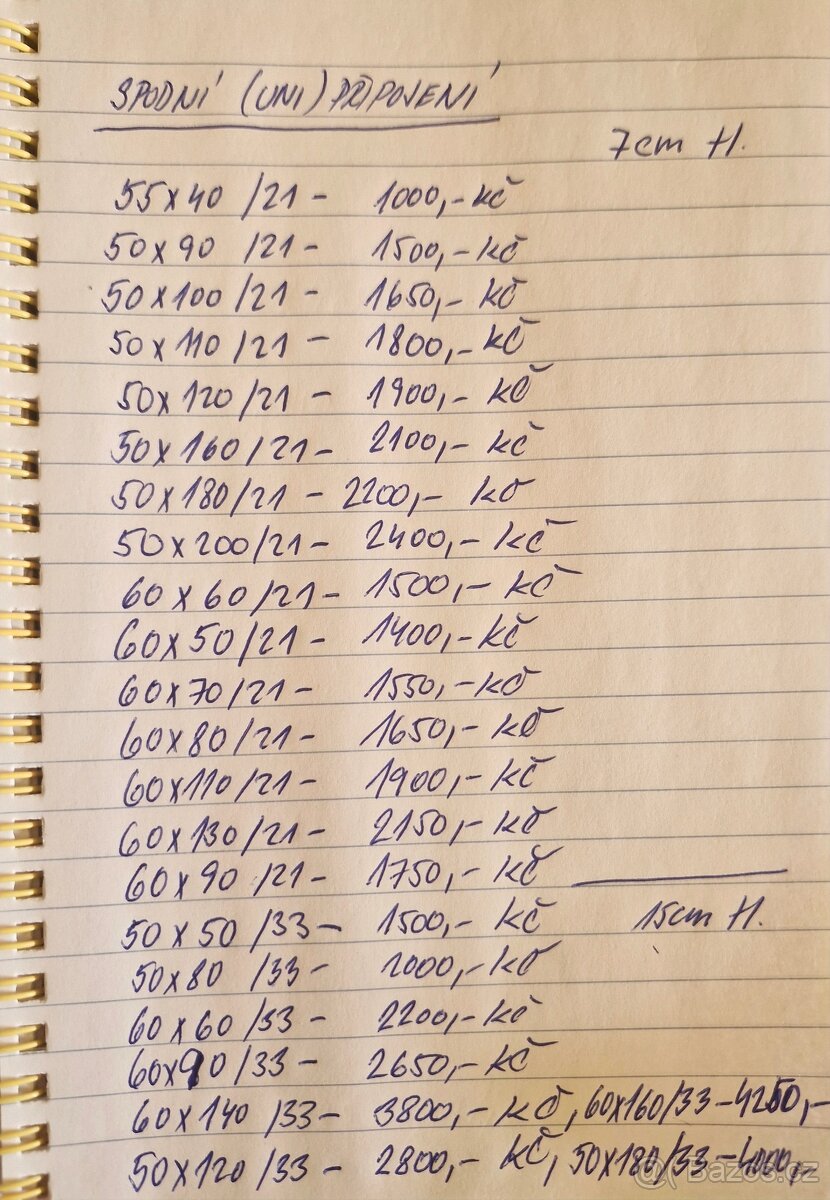 SPODNÍ (UNI) PŘIPOJENÍ
7cm H.
55x40 /21 - 1000,- KČ
50x90 /21 - 1500,- KČ
50x100 /21 - 1650,- KČ
50x110 /21 - 1800,- KČ
50x120 /21 - 1900,- KČ
50x160 /21 - 2100,- KČ
50x180 /21 - 2200,- KČ
50x200 /21 - 2400,- KČ
60x60 /21 - 1500,- KČ
60x50 /21 - 1400,- KČ
60x70 /21 - 1550,- KČ
60x80 /21 - 1650,- KČ
60x110 /21 - 1900,- KČ
60x130 /21 - 2150,- KČ
60x90 /21 - 1750,- KČ
50x50 /33 - 1500,- KČ 15cm H.
50x80 /33 - 2000,- KČ
60x60 /33 - 2200,- KČ
60x90 /33 - 2650,- KČ
60x140 /33 - 3800,- KČ, 60x160/33 - 4250,-
50x120 /33 - 2800,- KČ, 50x180/33 - 4000,-
Bazos.cz